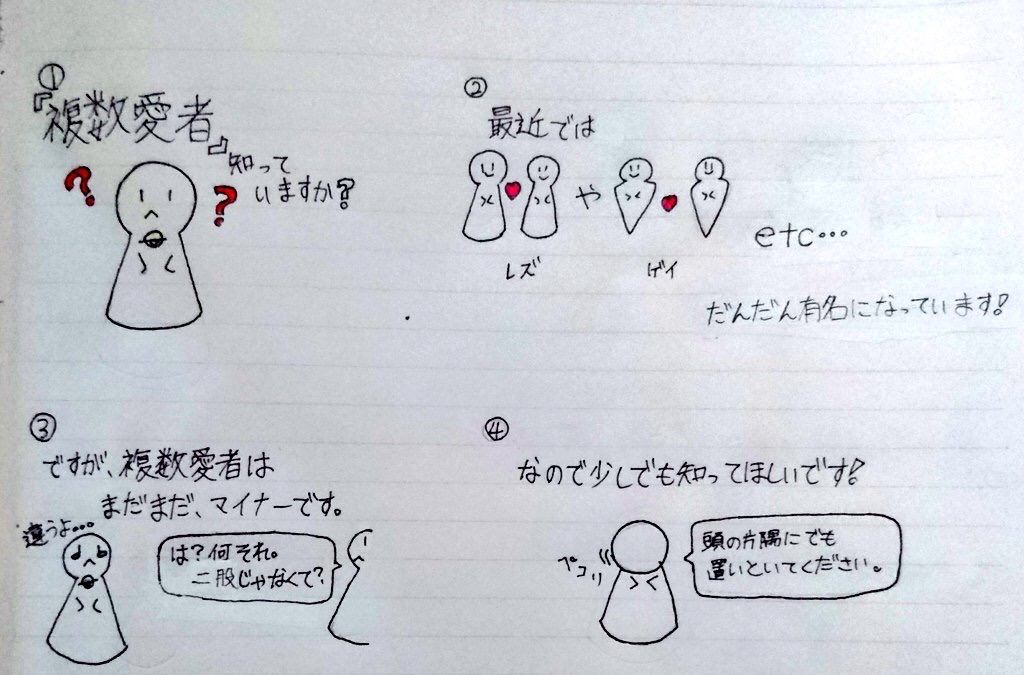 ①
『複数愛者』
知って
いますか?
? ?
②
最近では
や
etc…
レズ ゲイ
だんだん有名になっています!
③
ですが、複数愛者は
まだまだ、マイナーです。
違うよ…
は?何それ。
二股じゃなくて?
④
なので少しでも知ってほしいです!
ペコリ
頭の片隅にでも
置いといてください。